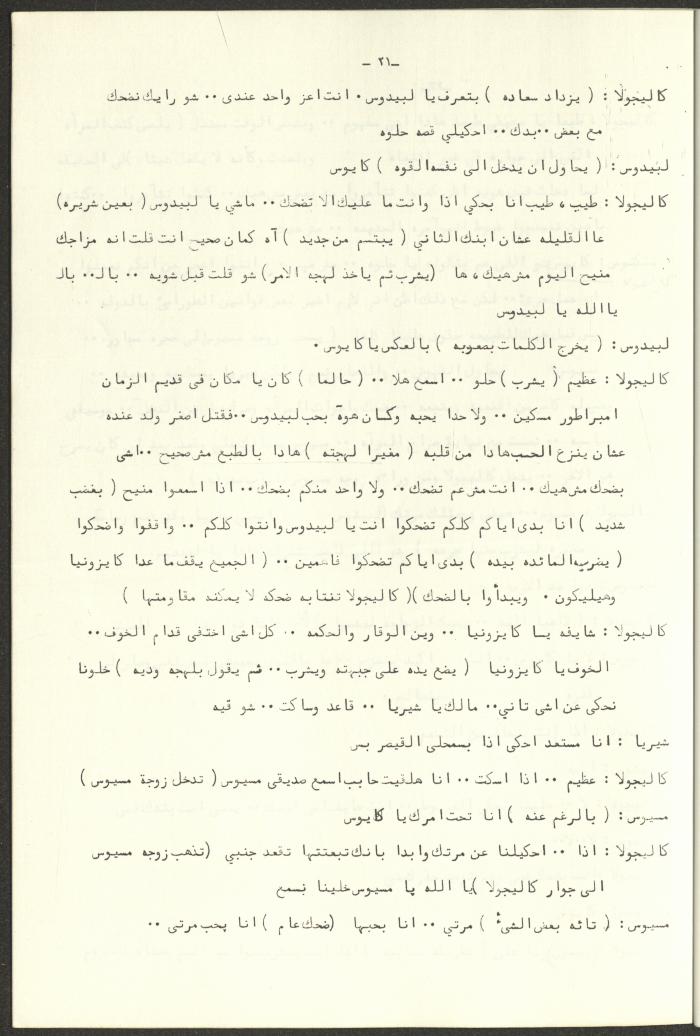 ـ٢١ ـ
كاليجولا : ( يزداد سعاده ) بتعرف يا لبيدوس ٠ انت اعز واحد عندى ٠٠ شو رايك نضحك
مع بعض ٠٠ بدك ٠٠ احكيلي قصه حلوه
لبيدوس : ( يحاول ان يدخل الى نفسه القوه ) كايوس
كاليجولا : طيب ، طيب انا بحكي اذا وانت ما عليك الا تضحك ٠٠ ماشي يا لبيدوس ( بعين شريره )
عاالقليله عشان ابنك الثاني ( يبتسم من جديد ) آه كمان صحيح انت قلت انه مزاجك
منيح اليوم مش هيك ، ها ( يشرب ثم ياخذ لهجه الامر ) شو قلت قبل شويه ٠٠ بالـ ٠٠ بالـ
يا الله يا لبيدوس
لبيدوس : ( يخرج الكلمات بصعوبه ) بالعكس يا كايوس ٠
كاليجولا : عظيم ( يشرب ) حلو ٠٠ اسمع هلا ٠٠ ( حالما ) كان يا مكان فى قديم الزمان
امبراطور مسكين ٠٠ ولا حدا يحبه وكان هوه بحب لبيدوس ٠٠ فقتل اصغر ولد عنده
عشان ينزع الحب هادا من قلبه ( مغيرا لهجته ) هادا بالطبع مش صحيح ٠٠ اشى
بضحك مش هيك ٠٠ انت مش عم تضحك ٠٠ ولا واحد منكم بضحك ٠٠ اذا اسمعوا منيح ( بغضب
شديد ) انا بدى اياكم كلكم تضحكوا انت يا لبيدوس وانتوا كلكم ٠٠ واقفوا واضحكوا
( يضرب المائده بيده ) بدى اياكم تضحكوا فاهمين ٠٠ ( الجميع يقف ما عدا كايزونيا
وهيليكون ٠ ويبدأوا بالضحك )( كاليجولا تنتابه ضحكه لا يمكنه مقاومتها )
كاليجولا : شايفه يا كايزونيا ٠٠ وين الوقار والحكمه ٠٠ كل اشى اختفى قدام الخوف ٠٠
الخوف يا كايزونيا ( يضع يده على جبهته ويشرب ٠٠ ثم يقول بلهجه وديه ) خلونا
نحكى عن اشى تاني ٠٠ مالك يا شيريا ٠٠ قاعد وساكت ٠٠ شو قيه
شيريا : انا مستعد احكى اذا بسمحلى القيصر بس
كاليجولا : عظيم ٠٠ اذا اسكت ٠٠ انا هلقيت حابب اسمع صديقى مسيوس ( تدخل زوجة مسيوس )
مسيوس : ( بالرغم عنه ) انا تحت امرك يا كايوس
كاليجولا : اذا ٠٠ احكيلنا عن مرتك وابدا بانك تبعتتها تقعد جنبي ( تذهب زوجه مسيوس
الى جوار كاليجولا ) يا الله يا مسيوس خلينا نسمع
مسيوس : ( تائه بعض الشئ ) مرتي ٠٠ انا بحبها ( ضحك عام ) انا بحب مرتى ٠٠